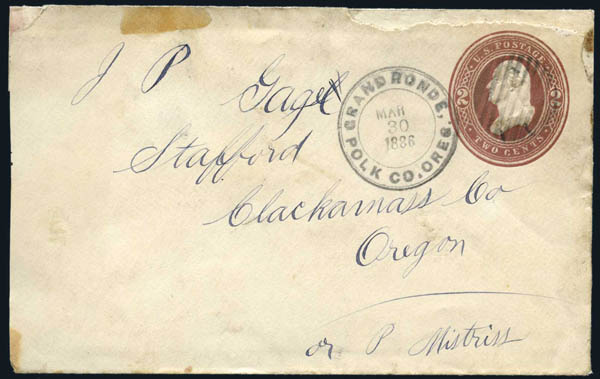 U.S. POSTAGE
TWO CENTS
GRAND RONDE,
MAR
30
1886
POLK CO. OREG.
J P Gage
Stafford
Clackamass Co
Oregon
or P Mistriss